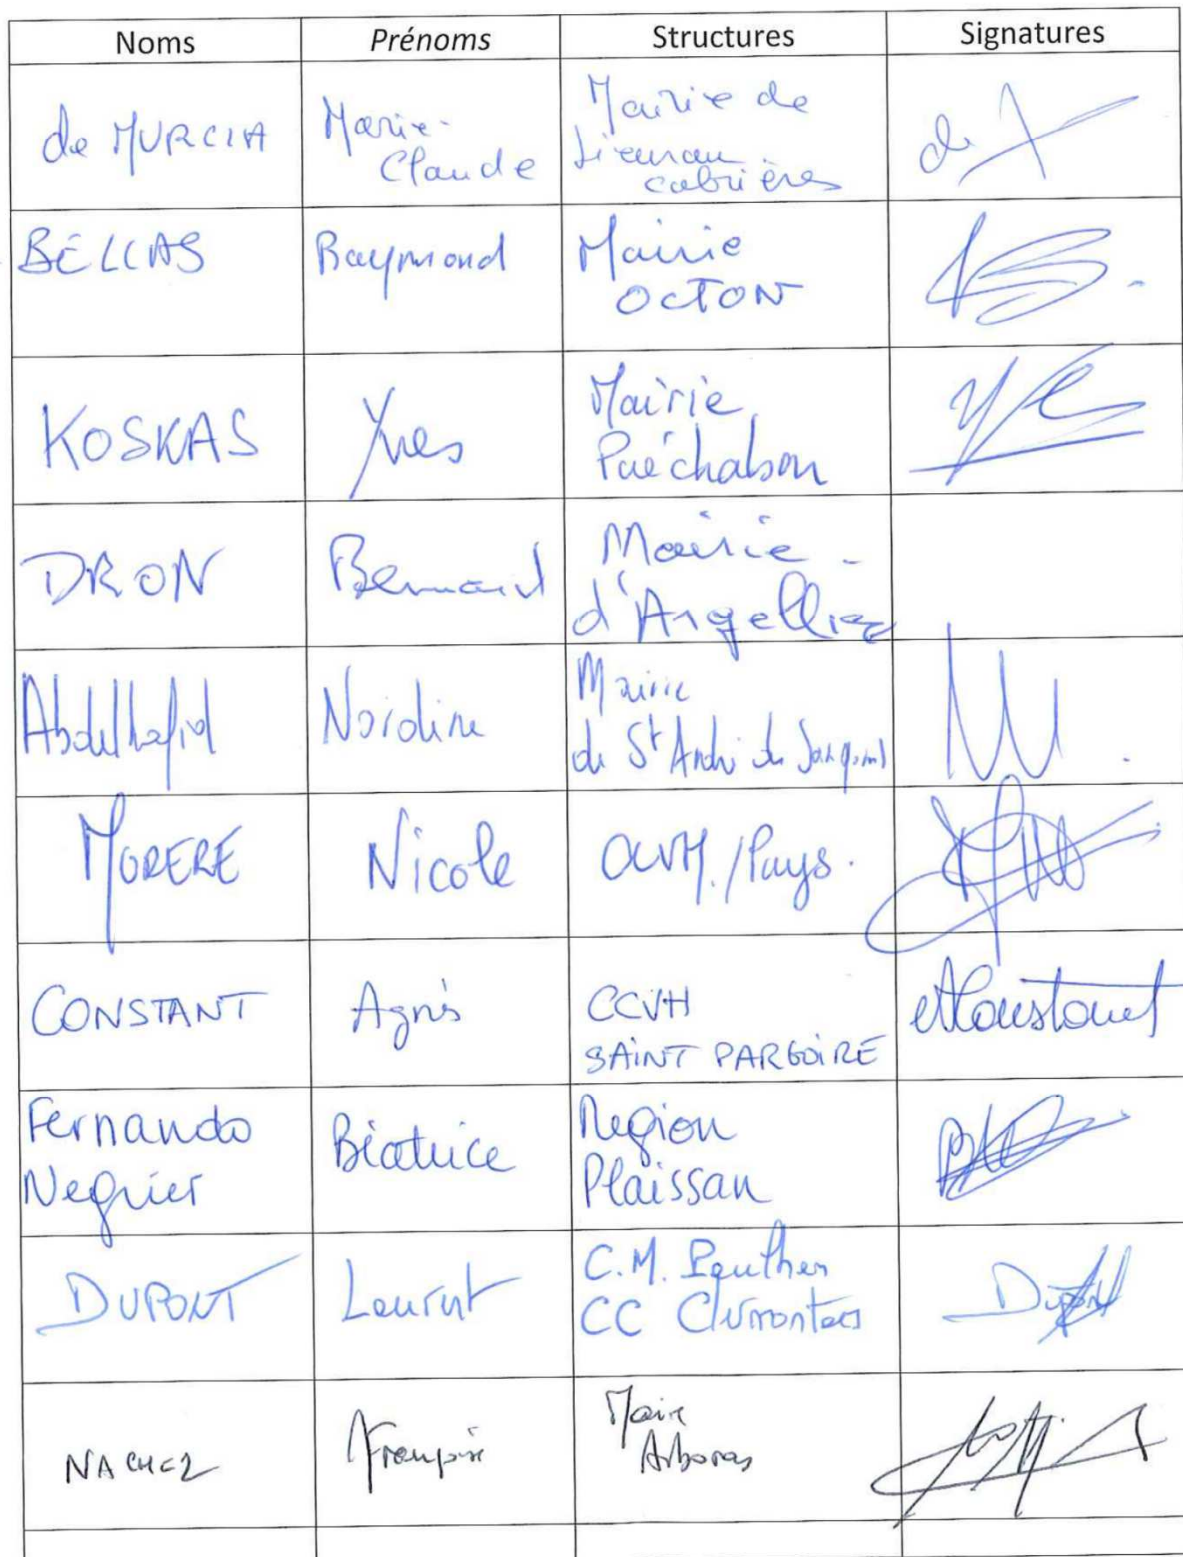 Noms Prénoms Structures Signatures
de MURCIA
Marie-
Claude
Mairie de
Lieuran
cabrières
BELLAS
Raymond
Mairie
OCTON
KOSKAS
Yves
Mairie
Puéchabon
DRON
Bernard
Mairie
d'Argelliers
Abdelhafid
Nordine
Mairie
de St André de Sangonis
MORERE
Nicole
/Pays.
CONSTANT
Agnès
CCVH
SAINT PARGOIRE
Fernando
Negrier
Béatrice
Region
Plaissan
DUPONT
Laurent
C.M.
CC Clermontais
Dupont
NACHEZ
Françoise
Maire
Arboras